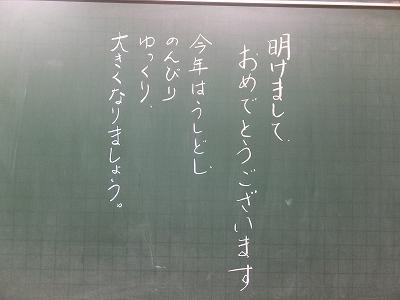 明けまして、
おめでとうございます
今年はうしどし、
のんびり
ゆっくり、
大きくなりましょう。